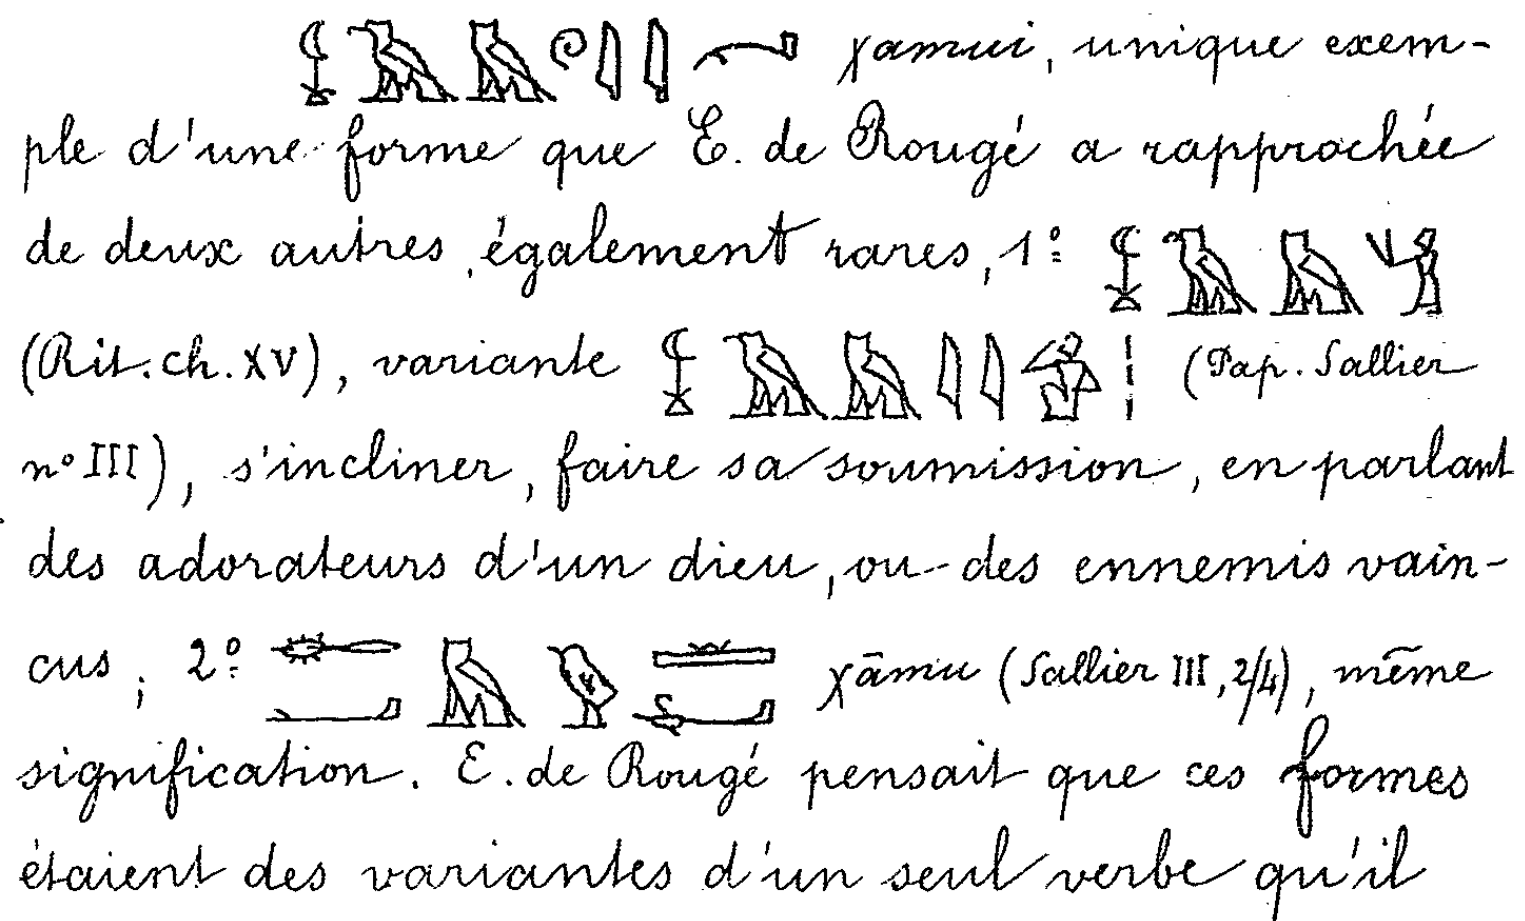 𓆼𓄿𓅓𓏲𓇋𓇋𓂢 χamui, unique exem-
ple d'une forme que E. de Rougé a rapprochée
de deux autres, également rares, 1º 𓆼𓄿𓅓𓀢
(Rit. ch. XV), variante 𓆼𓄿𓅓𓇋𓇋 (Pap. Sallier
nº III), s'incliner, faire sa soumission, en parlant
des adorateurs d'un dieu, ou des ennemis vain-
cus; 2º 𓂝𓅓𓅱 χāmu (Sallier III, 2/4), même
signification. E. de Rougé pensait que ces formes
étaient des variantes d'un seul verbe qu'il